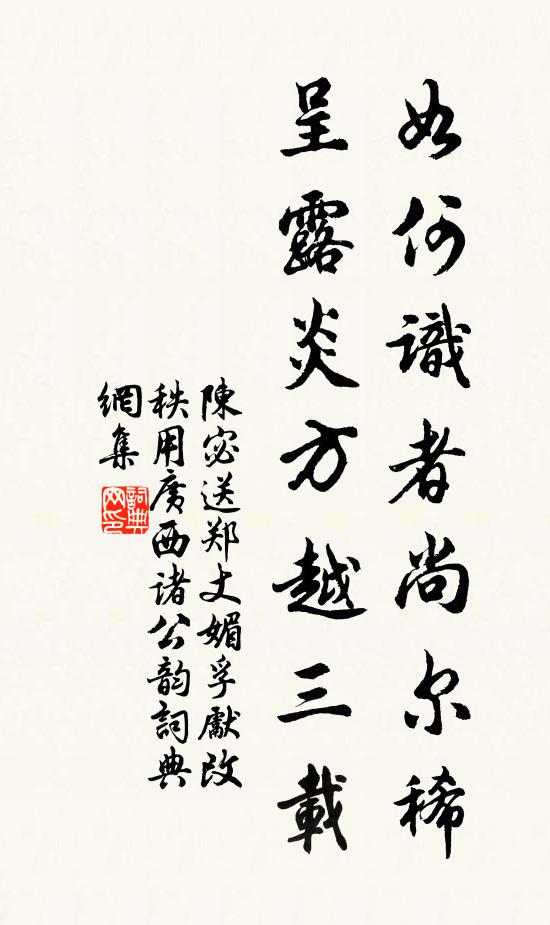 如何識者尚尔稀
呈露炎方越三載
陳宓送郑丈媚孚獻改
秩用廣西诸公韵詞典
網集
詞典
网印